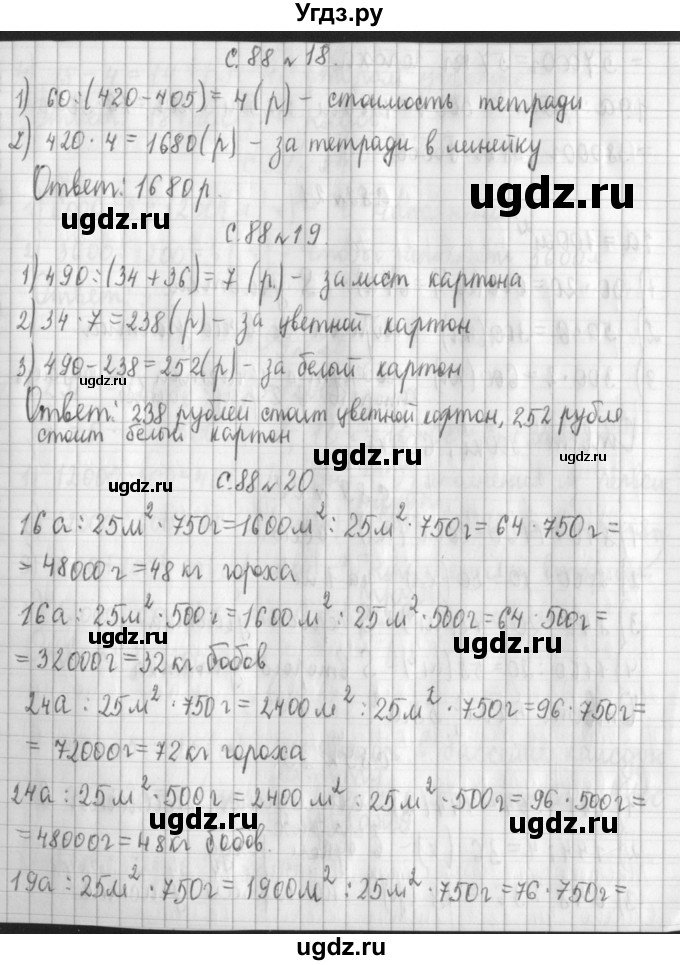 Угдз.ру
с.88 №18.
1) 60:(420-405)= 4(р) - стоимость тетради
2) 420·4=1680(р) - за тетради в линейку
Ответ: 1680р.
ugdz.ru
ugdz.ru
с.88 №19.
1) 490:(34+36)= 7 (р.) - за лист картона
2) 34·7=238(р) - за цветной картон
3) 490-238=252(р) - за белый картон
ugdz.ru
Ответ: 238 рублей стоит цветной картон, 252 рубля
стоит белый картон
ugdz.ru
ugdz.ru
с.88 №20.
16а : 25м²·750г=1600м² : 25м²·750г=64·750г=
= 48000г=48 кг гороха
16а : 25м²·500г=1600м² : 25м²·500г=64·500г=
ugdz.ru
ugdz.ru
=32000г=32кг бобов
24а : 25м²·750г=2400м² : 25м²·750г=96·750г=
= 72000г=72 кг гороха
24а : 25м²·500г=2400м² : 25м²·500г=96·500г=
ugdz.ru
ugdz.ru
=48000г=48кг бобов.
19а : 25м²·750г= 1900м² : 25м²·750г=76·750г=
ugdz.ru